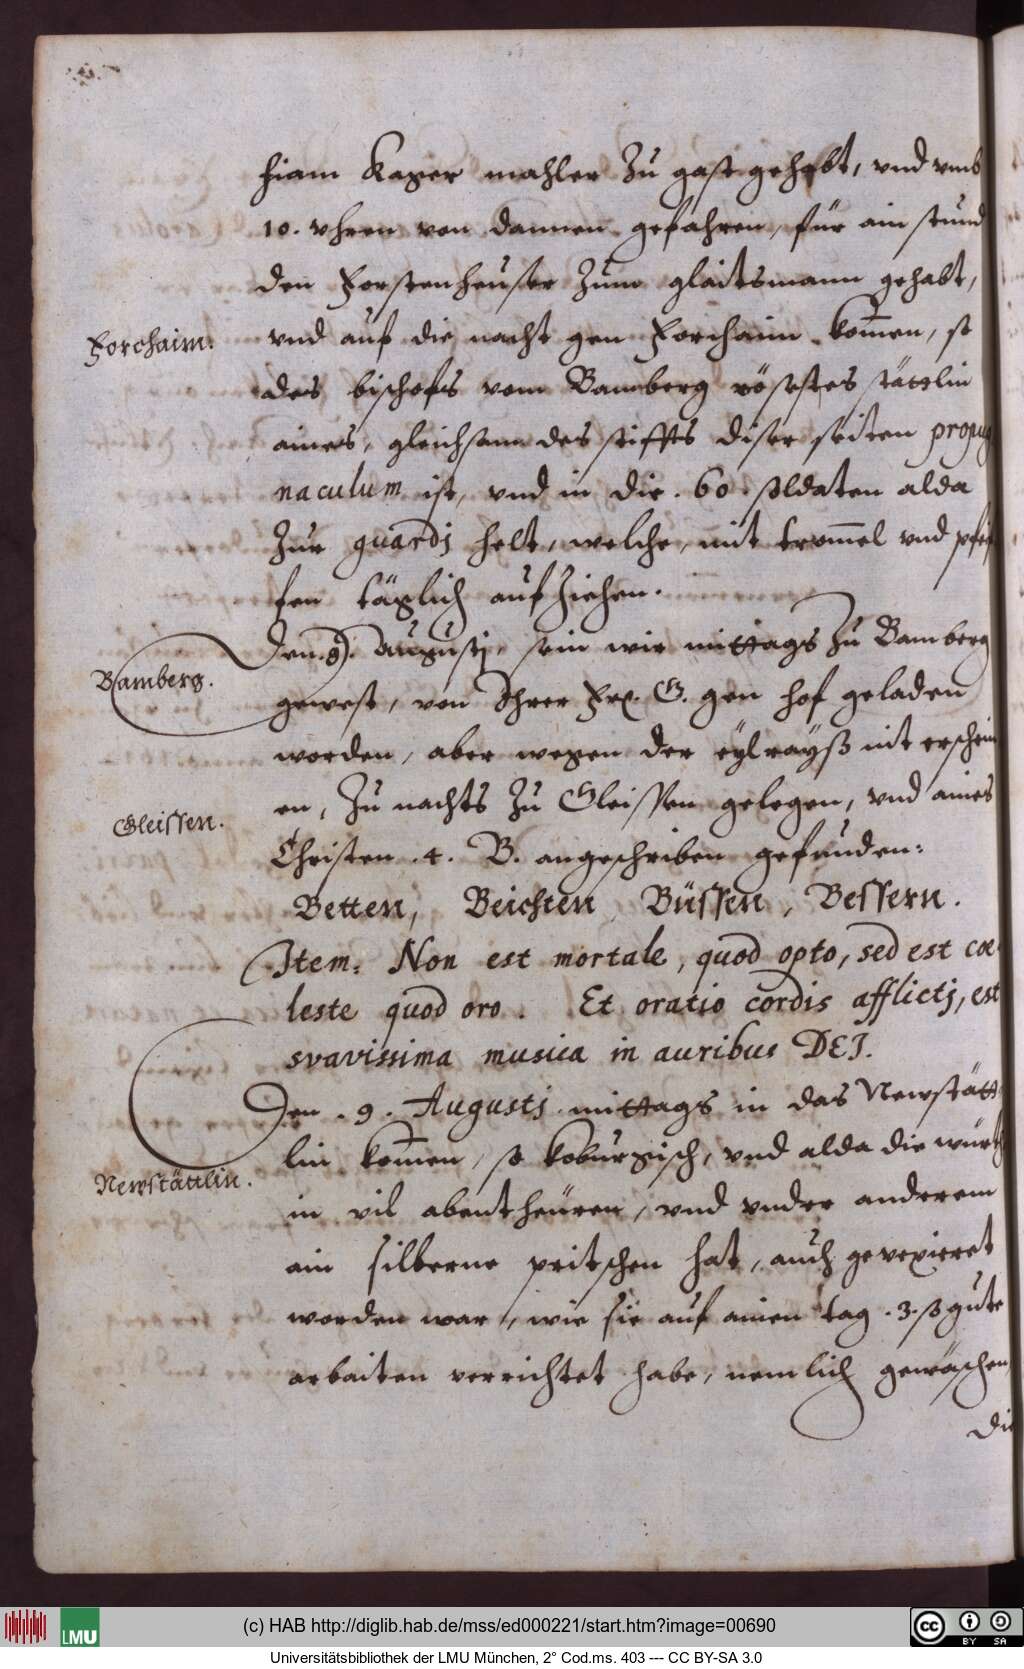 hiam Kager mahler zu gast gehabt, vnd vmb
10. vhren von dannen gefahren, für ain stund
den Forstenheuser zum glaitsmann gehabt,
Forchaim.
vnd auf die nacht gen Forchaim kom̄en, so
des bischofs vom Bamberg vöstestes stättlin
aines, gleichsam des stiffts diser seiten propug
naculum ist, vnd in die .60. soldaten alda
zur guardj helt, welche, mit trom̄el vnd pfeif
fen täglich aufziehen.
Bamberg.
Den .8. Augustj, sein wir mittags zu Bamberg
gewest, von Ihrer Frn. G. gen hof geladen
worden, aber wegen der eylrayß nit erschein
Gleissen.
en, zu nachts zu Gleissen gelegen, vnd aines
Christen .4. B. angeschriben gefunden:
Betten, Beichten, Büssen, Bessern.
Item: Non est mortale, quod opto, sed est cœ
leste quod oro. Et oratio cordis afflictj, est
svavissima musica in auribus DEI.
Den .9. Augustj mittags in das Newstätt
lin kom̄en, so koburgisch, vnd alda die würt
Newstättlin.
in vil abentheuren, vnd vnder anderem
ain silberne pritschen hat, auch gevexieret
worden war, wie sie auf ainen tag .3. so gute
arbaiten verrichtet habe, nemlich gewäschen,
die
(c) HAB http://diglib.hab.de/mss/ed000221/start.htm?image=00690
LMU
CC BY SA
Universitätsbibliothek der LMU München, 2° Cod.ms. 403 --- CC BY-SA 3.0